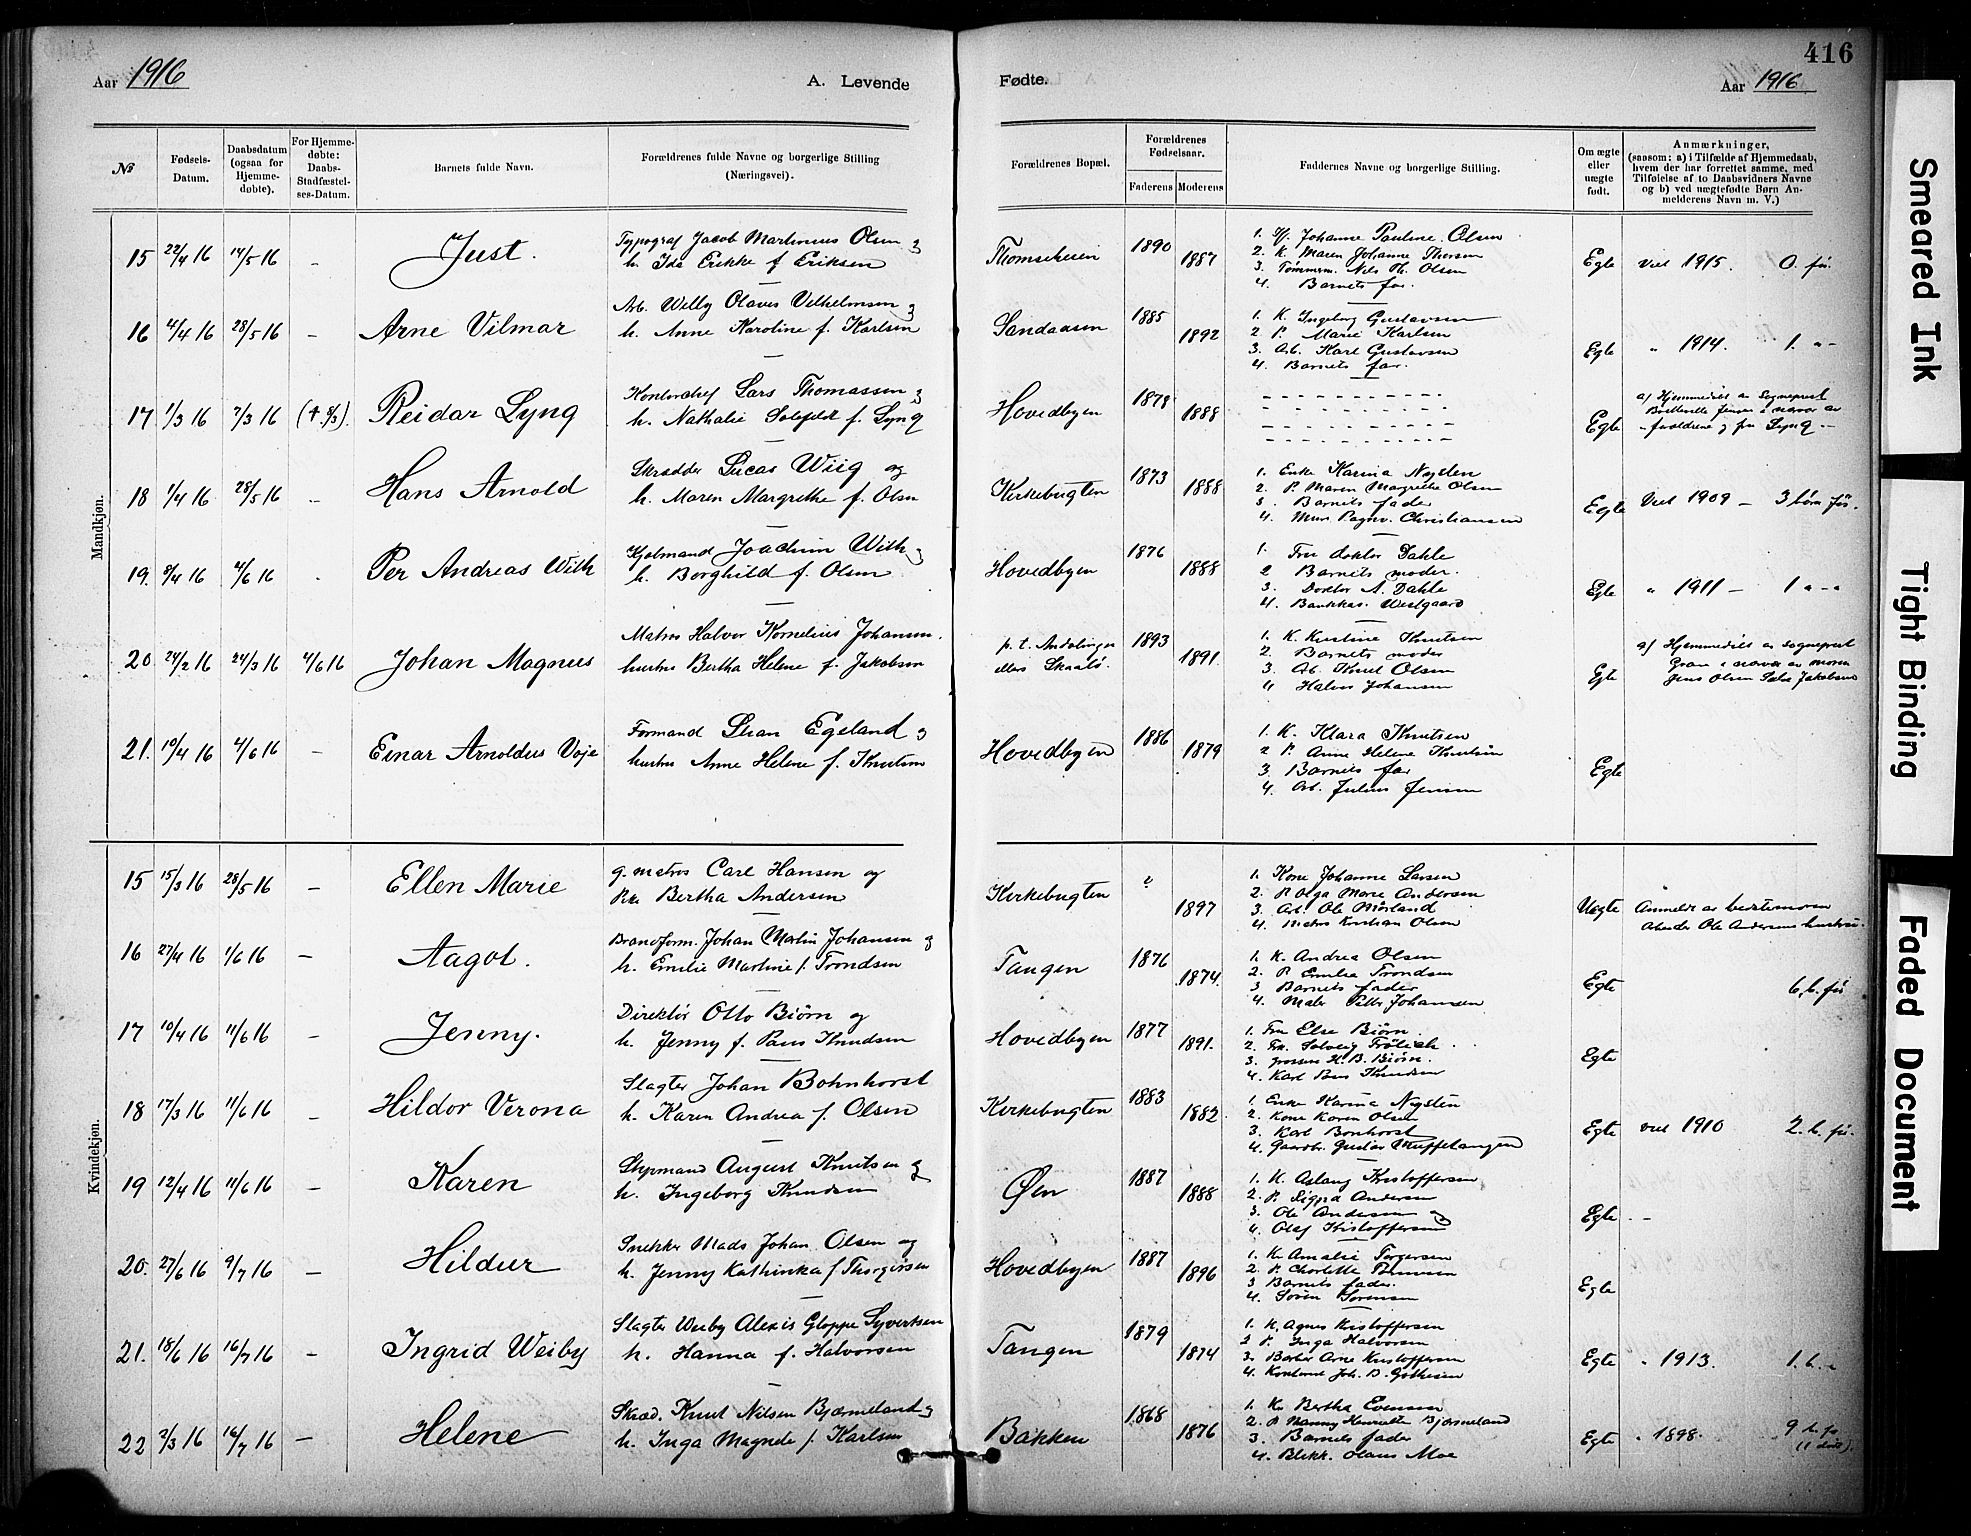 416
Aar 1916
A. Levende
Fødte.
Aar 1916
№
Fødsels-Datum.
Daabsdatum (ogsaa for Hjemmedøbte).
For Hjemmedøbte: Daabs-Stadfæstelses-Datum.
Barnets fulde Navn.
Forældrenes fulde Navne og borgerlige Stilling (Næringsvei).
Forældrenes Bopæl.
Forældrenes Fødselsaar.
Faderens
Moderens
Faddernes Navne og borgerlige Stilling.
Om ægte eller uægte født.
Anmærkninger,
(saasom: a) i Tilfælde af Hjemmedaab,
hvem der har forrettet samme, med
Tilføielse af to Daabsvidners Navne
og b) ved uægtefødte Børn An-
melderens Navn m. V.)
Mandkjøn.
15 22/4 16 14/5 16 - Just.
Typograf Jacob Martinius Olsen
h. Ida Erikke f Eriksen
1890 1887
Johanne Pauline Olsen
2. K. Maren Johanne Thorsen
3. Tømmerm. Nils Th. Olsen
4. Barnets far.
Egte viet 1915. 0. fü.
16 4/4 16 28/5 16 - Arne Vilmar
Arb. Willy Olaves Vilhelmsen
h. Anne Karoline f. Karlsen
Sandaasen 1885 1892
1. K. Ingeborg Gustavsen
2 P. Marie Karlsen
3. Arb. Karl Gustavsen
4. Barnets far.
Egte " 1914. 1. "-
17 1/3 16 7/3 16 Reidar Lyng
Kontorchef Lars Thomassen
h. Nathalie f. Lyng
Hovedbyen 1878 1888
Egte
a/ Hjemmedøbt av Sogneprest
Jensen i nærvær av
forældrene og fru Lyng
18 1/4 16 28/5 16 - Hans Arnold
Skrædder Lucas Wiig og
h. Maren Margrethe f. Olsen
Kirkebugten 1873 1888
1. Enke Karina Nysten
2. P. Maren Margrethe Olsen
3. Barnets fader
4. Mur. Ragnv. Christiansen
Egte Viet 1909 - 3 børn før.
19. 8/4 16 4/6 16 Per Andreas With
Joachim With
h. Borghild f. Olsen
Hovedbyen 1876 1888
1. Fru doktor Dahle
2 Barnets moder.
3. Doktor A. Dahle
4. Bankkas. Westgaard
Egte " 1911 - 1 "-"
20 24/2 16 24/3 16 4/6 16 Johan Magnus
Matros Halvor Kornelius Johansen.
hustru Bertha Helene f. Jakobsen
p. t.
ellers Skaatø. 1893 1891
1. K. Kristine Knutsen
2. Barnets moder
3. Arb. Knut Olsen
4 Halvor Johansen
Egte
a/ Hjemmedøbt av sogneprest
Gran i nærvær av
Jens Olsen Jakobsen
21. 10/4 16 4/6 16 - Einar Arnoldus Voje
Formand Egeland
hustru Anne Helene f. Knutsen
Hovedbyen 1886 1879
1. K. Klara Knutsen
2 P. Anne Helene Knutsen
3. Barnets far
4. Arb. Julius Jensen
Egte
Kvindekjøn.
15 15/3 16 28/5 16 - Ellen Marie
g. matros Carl Hansen og
Pike Bertha Andersen
Kirkebugten ? 1897
1. Kone Johanne Larsen
2. P. Olga Marie Andersen
3. Arb. Ole Mørland
4. Matros Kristian Olsen
Uegte
Anmeldt av bedstemoren
Arbeider Ole Andersens hustru.
16 27/4 16 1/6 16 - Aagot.
Brandform. Johan Martin Johansen og
h. Emilie Martine f. Trondsen
Tangen 1876 1874.
1. K. Andrea Olsen
2. P. Emilie Trondsen
3 Barnets fader
4. Maler Johansen
Egte 6 b. før
17 10/4 16 11/6 16 - Jenny.
Direktør Otto Biørn og
h. Jenny f. Paus Knudsen
Hovedbyen 1877 1891.
1. Fru Else Biørn.
2. Frk. Solveig Frölich.
3. grosserer H. B. Biørn.
4. Karl Paus Knudsen
Egte
18 17/3 16 11/6 16 - Hildor Verona
Slagter Johan Bohnhorst
h. Karen Andrea f. Olsen
Kirkebugten 1883 1882.
1. Enke Karina Nysten
2. Kone Karen Olsen
3. Karl Bonhorst
4. Gaardbr. Gustav
Egte viet 1910 2. b. før.
19 12/4 16 11/6 16 - Karen
Styrmand August Knutsen og
h. Ingeborg Knudsen
Øen 1887 1888
1. K. Aslaug Kristoffersen
2. P. Andersen
3. Ole Andersen
4. Olaf Kristoffersen
Egte - -
20. 27/6 16 9/7 16 - Hildur
Snekker Mads Johan Olsen og
h. Jenny Kathinka f.
Hovedbyen 1887 1896
1. K. Amalie Torgersen
2. P. Charlotte
3 Barnets fader.
4. Søren Sørensen
Egte
21. 18/6 16 16/7 16 - Ingrid Weiby
Slagter Weiby Alexis Gloppe Syvertsen
h. Hanna f. Halvorsen
Tangen 1879 1874
1. K. Agnes Kristoffersen
2 P. Inga Halvorsen
3. Barber Arne Kristoffersen
4. Kontorist Joh. B.
Egte " 1913. 1. b. "
22 2/3 16 16/7 16 - Helene
Skræd. Knut Nilsen Bjærmeland og
h. Inga Magnete f. Karlsen
Bakken 1868 1876
1. K. Bertha Evensen
2. P Nanny Henriette Bjærmeland
3. Barnets fader
4. Blikk. Olaus Moe
Egte " 1898. 9 b. før
(1 død).
Smeared Ink
Tight Binding
Faded Document